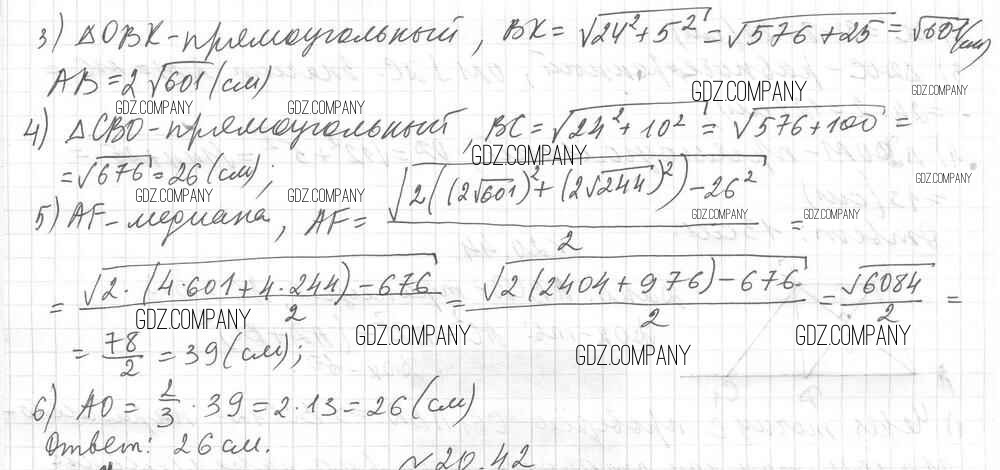 3) △OBK - прямоугольный, BK = √(24² + 5²) = √(576 + 25) = √601 (см)
AB = 2√601 (см)
GDZ.COMPANY GDZ.COMPANY GDZ.COMPANY GDZ.COMPANY
4) △CBO - прямоугольный, BC = √(24² + 10²) = √(576 + 100) =
GDZ.COMPANY
= √676 = 26 (см);
GDZ.COMPANY GDZ.COMPANY GDZ.COMPANY
5) AF - медиана, AF = √(2((2√601)² + (2√244)²) - 26²) / 2 =
GDZ.COMPANY GDZ.COMPANY
= √(2·(4·601 + 4·244) - 676) / 2 = √(2(2404 + 976) - 676) / 2 = √6084 / 2 =
GDZ.COMPANY GDZ.COMPANY GDZ.COMPANY
= 78/2 = 39 (см);
GDZ.COMPANY
6) AO = 2/3 · 39 = 2·13 = 26 (см)
Ответ: 26 см.
√20.42